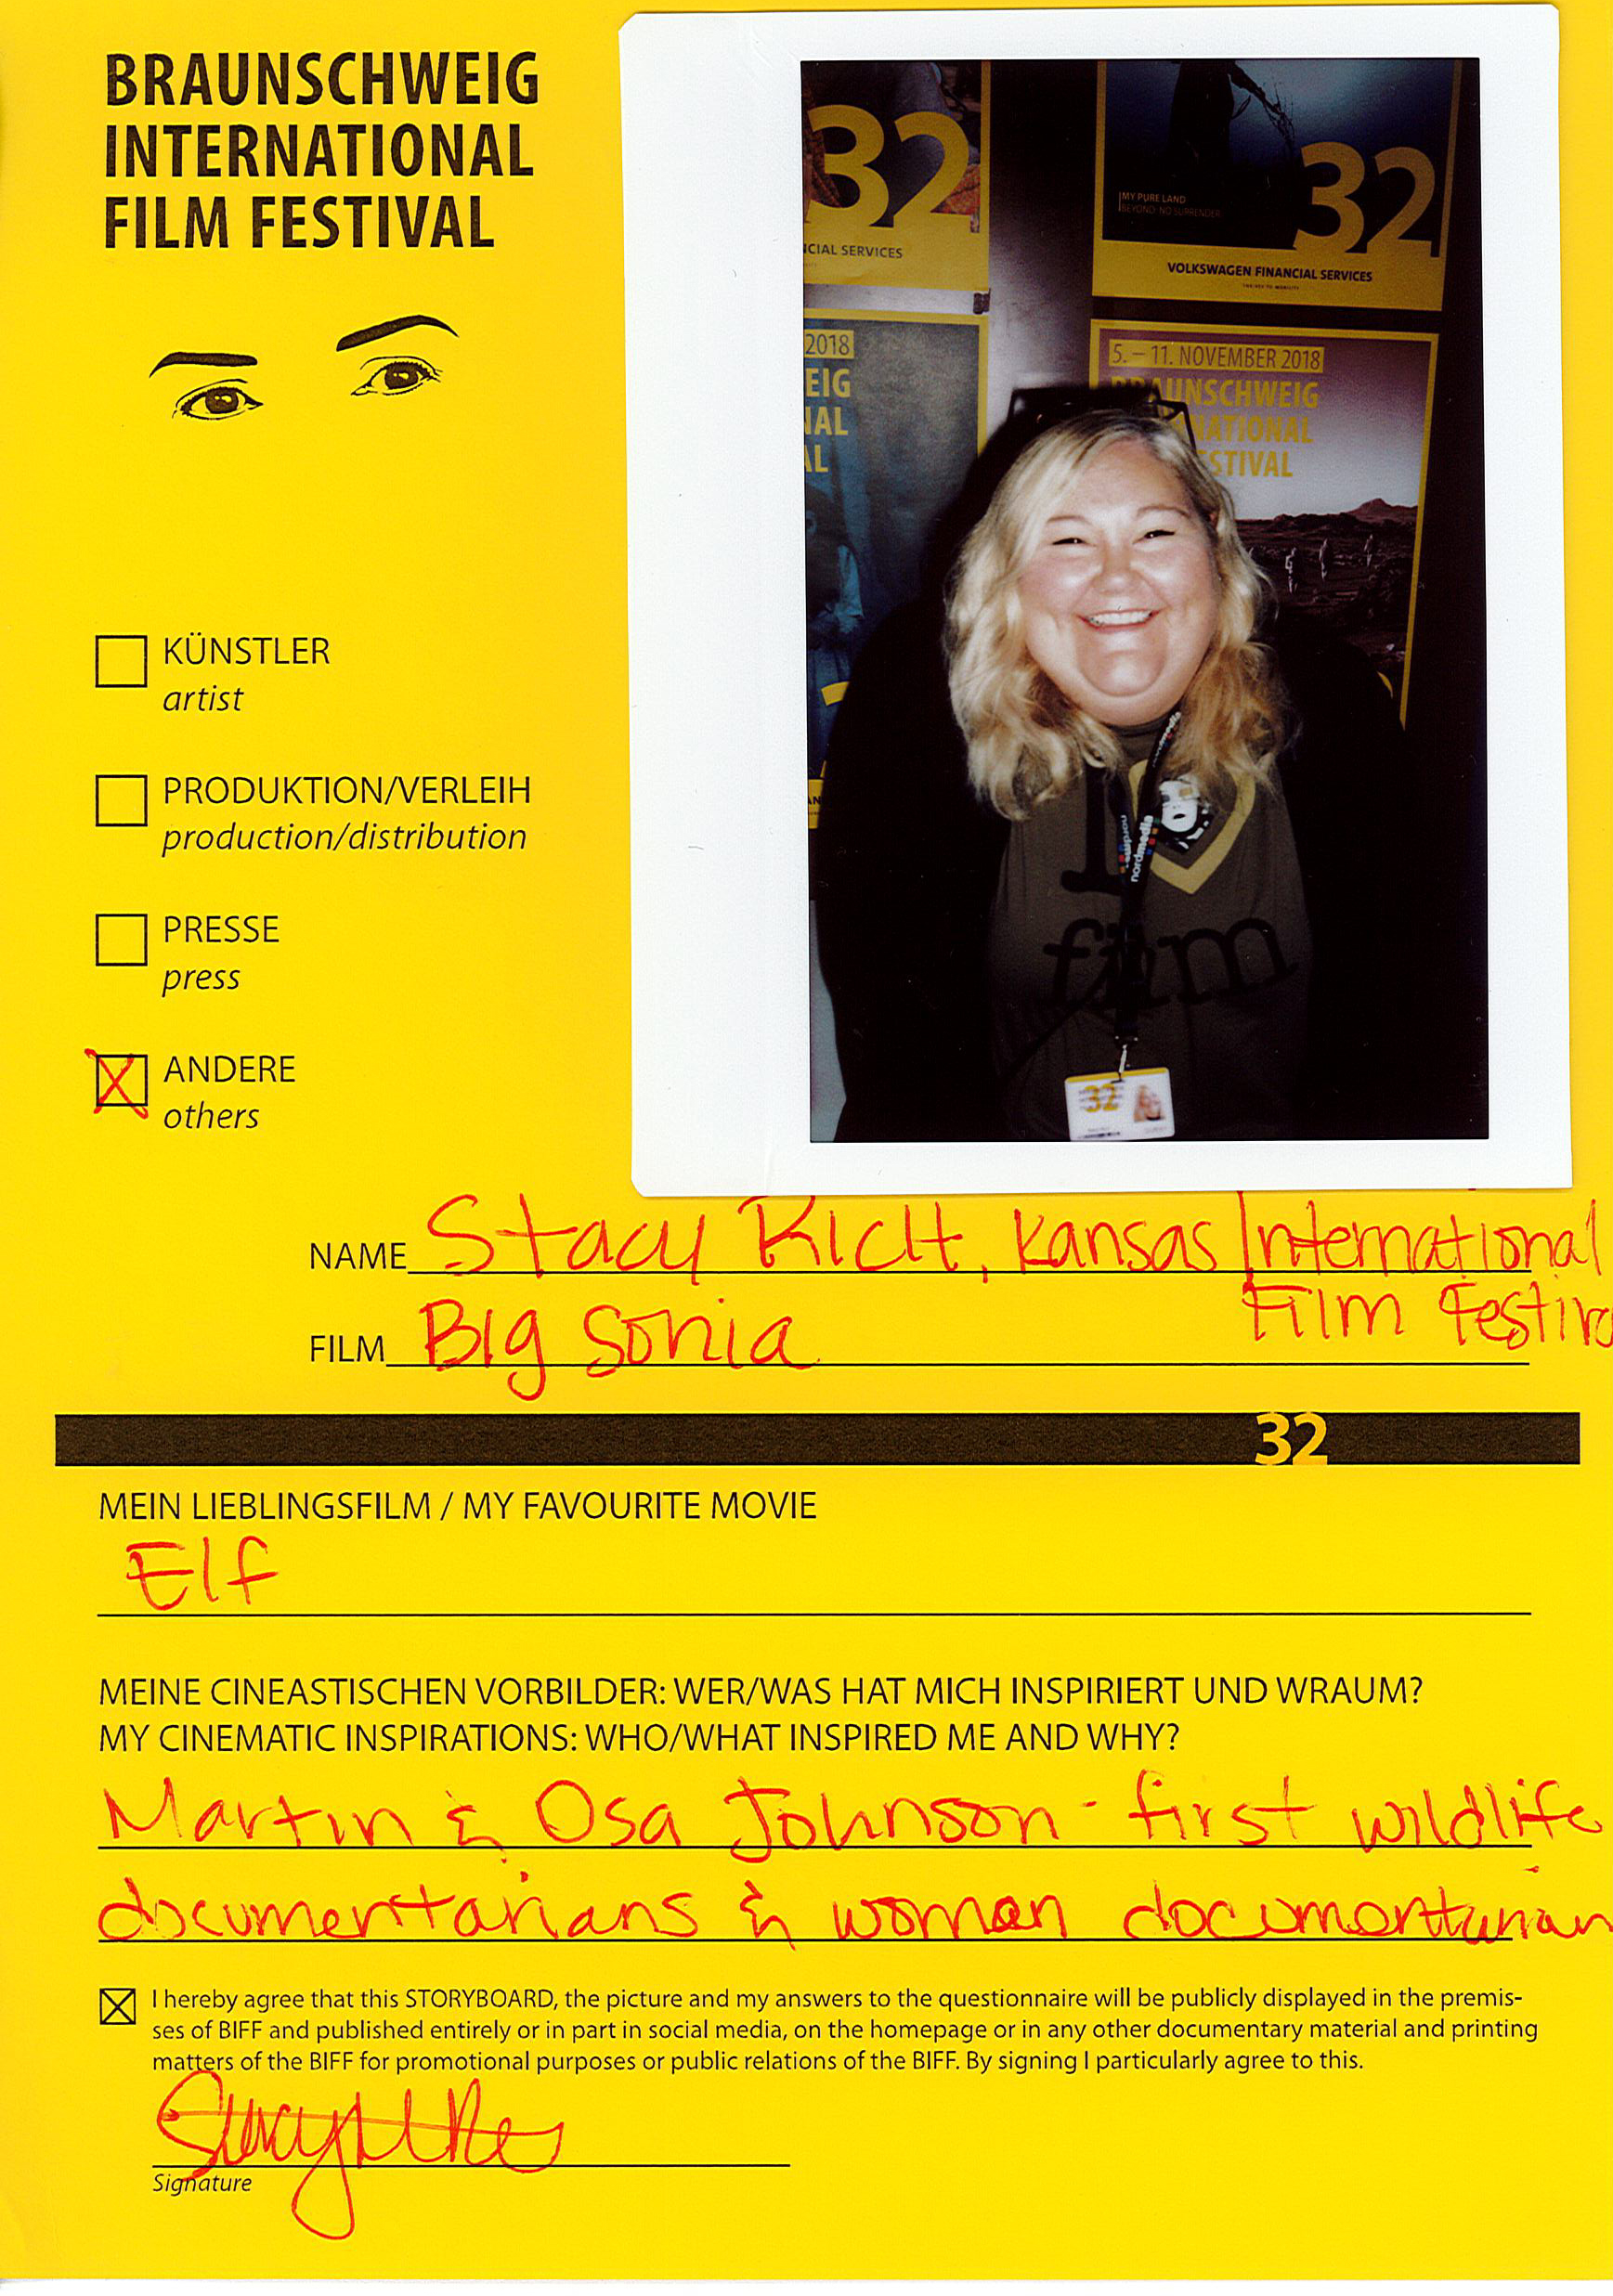 BRAUNSCHWEIG
INTERNATIONAL
FILM FESTIVAL
32
NCIAL SERVICES
MY PURE LAND
BEYOND: NO SURRENDER
32
VOLKSWAGEN FINANCIAL SERVICES
2018
EIG
NAL
AL
5. – 11. NOVEMBER 2018
BRAUNSCHWEIG
NATIONAL
STIVAL
nordmedia
nordmedia
I
film
32
KÜNSTLER
artist
PRODUKTION/VERLEIH
production/distribution
PRESSE
press
X ANDERE
others
NAME Stacy Richt, Kansas International
Film Festiva
FILM Big Sonia
32
MEIN LIEBLINGSFILM / MY FAVOURITE MOVIE
Elf
MEINE CINEASTISCHEN VORBILDER: WER/WAS HAT MICH INSPIRIERT UND WRAUM?
MY CINEMATIC INSPIRATIONS: WHO/WHAT INSPIRED ME AND WHY?
Martin & Osa Johnson - first wildlife
documentarians & woman documentarian
I hereby agree that this STORYBOARD, the picture and my answers to the questionnaire will be publicly displayed in the premis-
ses of BIFF and published entirely or in part in social media, on the homepage or in any other documentary material and printing
matters of the BIFF for promotional purposes or public relations of the BIFF. By signing I particularly agree to this.
Signature